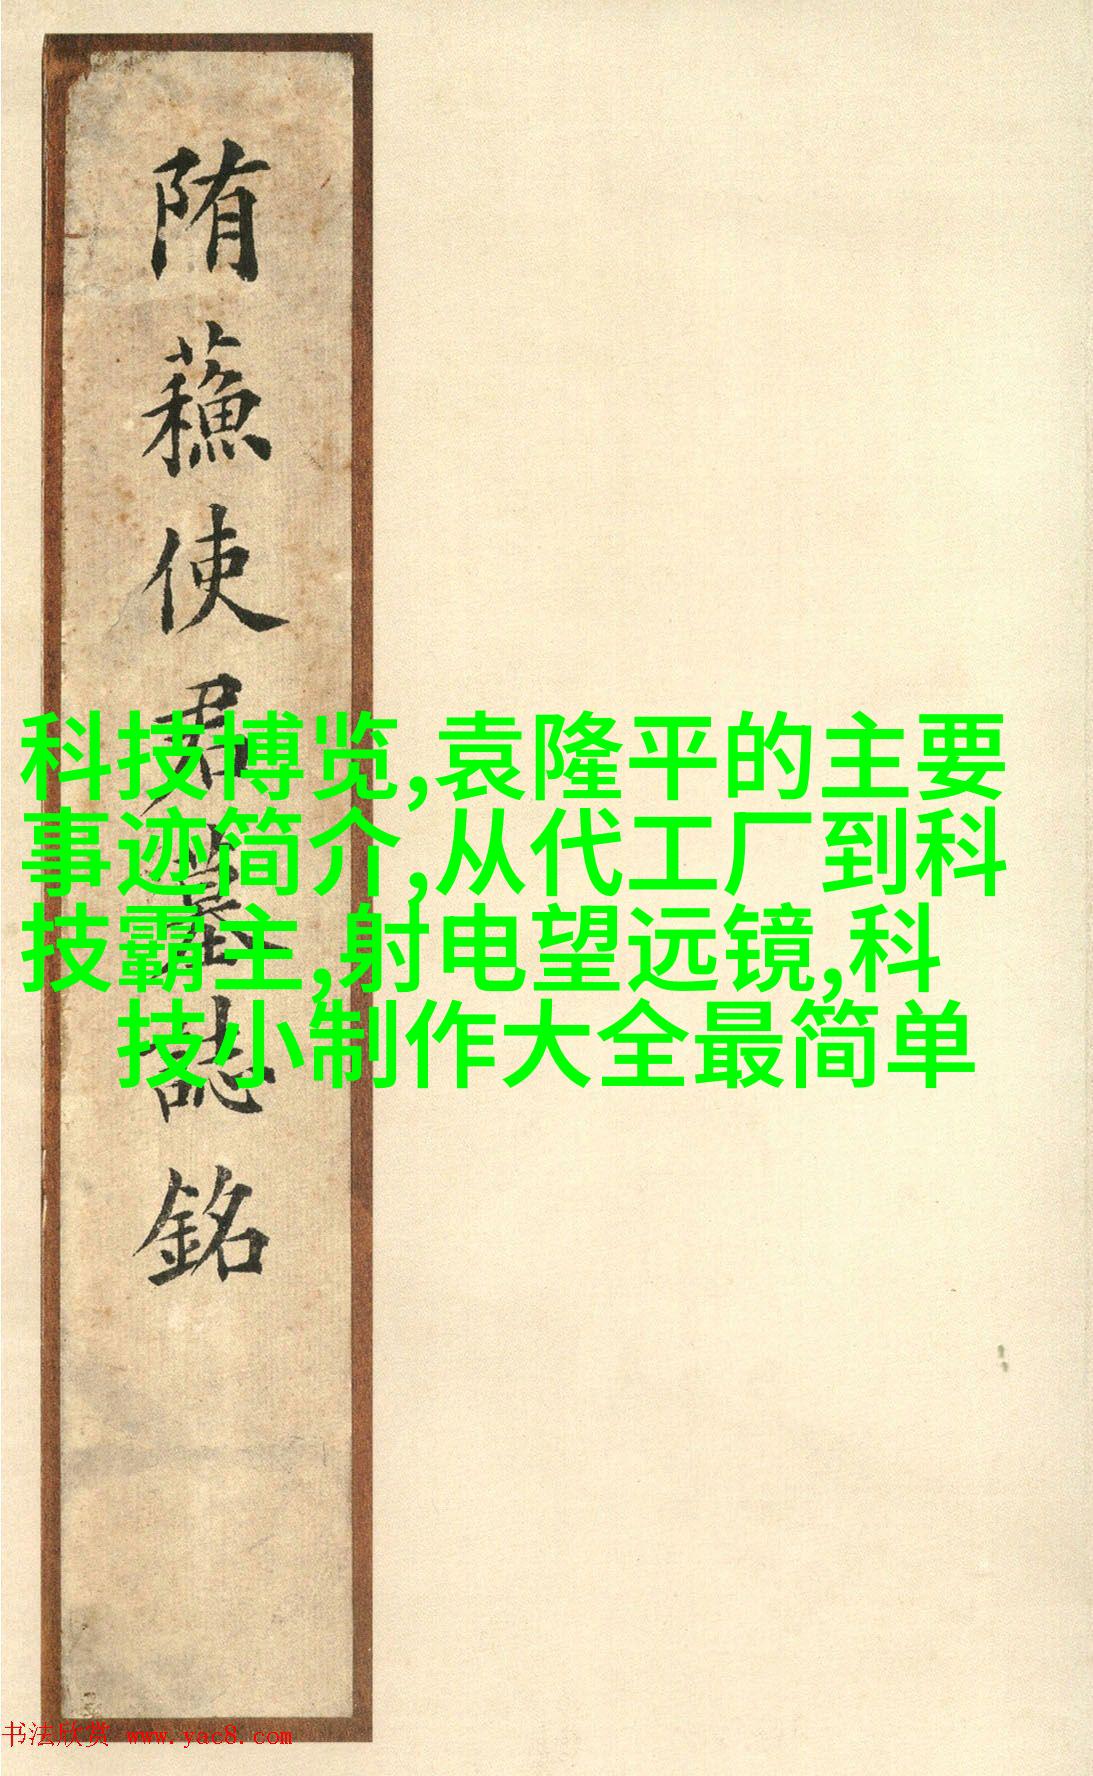 隋蘓使君墓誌銘
科技博览,袁隆平的主要
事迹简介,从代工厂到科
技霸主,射电望远镜,科
技小制作大全最简单
书法欣赏 www.yac8.com